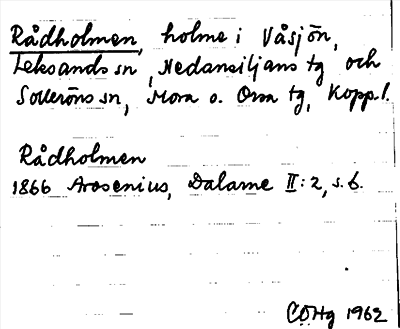 Rådholmen, holme i Våsjön,
Leksands sn, Nedansiljans tg och
Solleröns sn, Mora o. Orsa tg, Kopp. l.
Rådholmen
1866 Arosenius, Dalarne II:2, s. 6.
COHg 1962